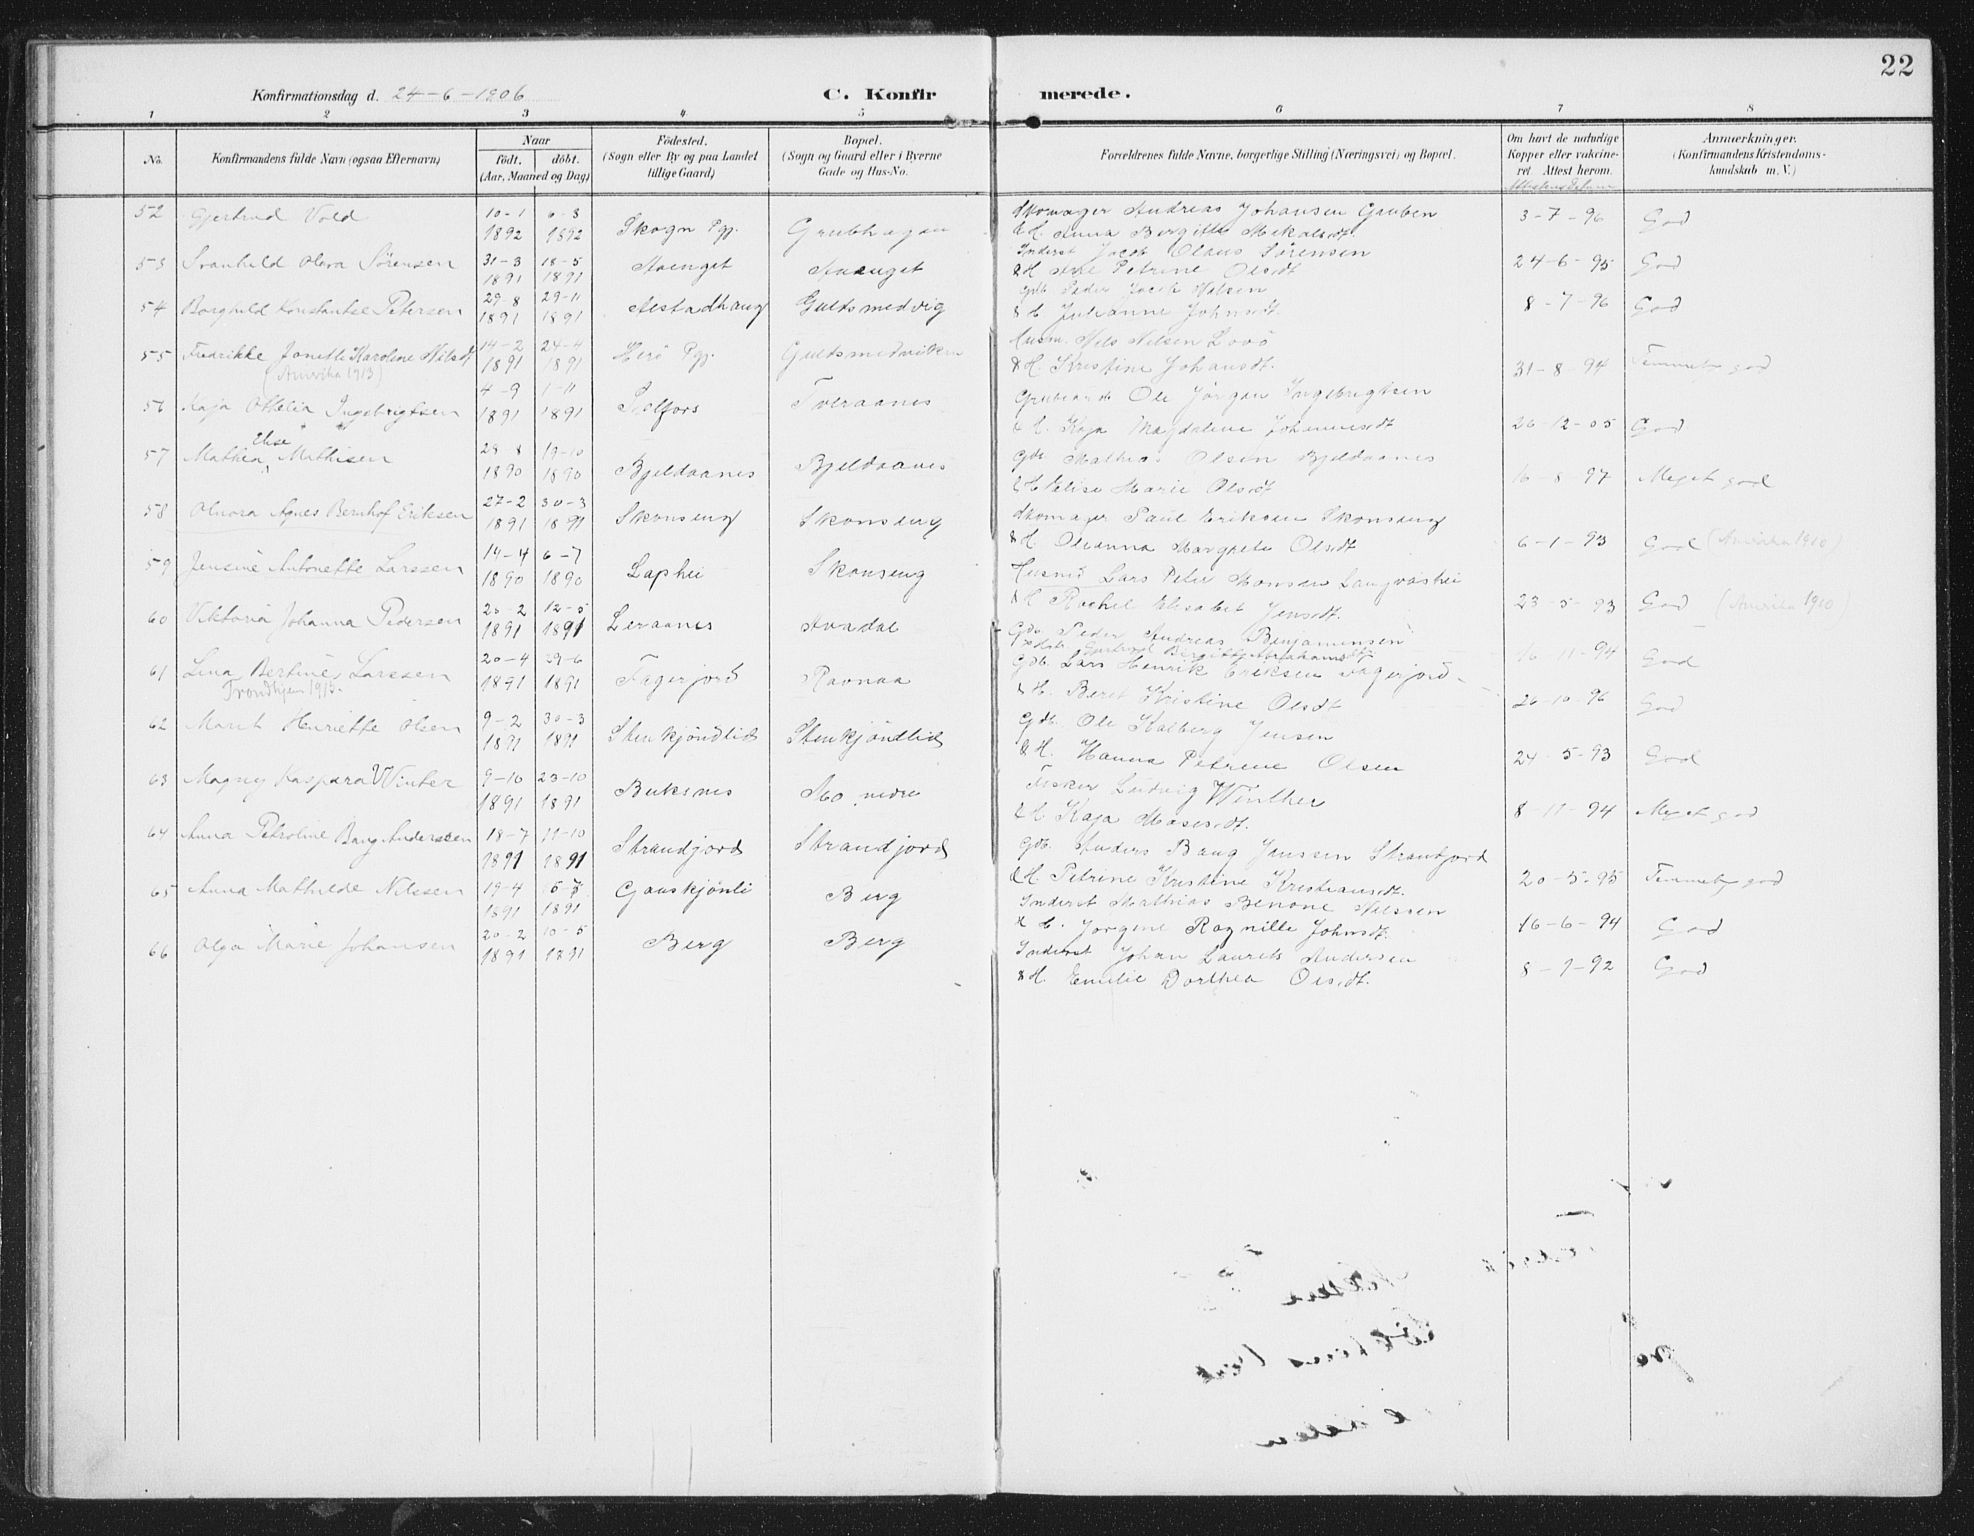 22
Konfirmationsdag d. 24-6-1906
C. Konfirmerede.
1 2 3 4 5 6 7 8
No.
Konfirmandens fulde Navn (ogsaa Efternavn)
Naar
födt. döbt.
(Aar, Maaned og Dag)
Födested.
(Sogn eller By og paa Landet
tillige Gaard)
Bopæl.
(Sogn og Gaard eller i Byerne
Gade og Hus-No.
Forældrenes fulde Navne, borgerlige Stilling (Næringsvei) og Bopæl.
Om havt de naturlige
Kopper eller vakcine-
ret Attest herom.
Anmærkninger.
(Konfirmandens Kristendoms-
kundskab m. V.)
52 Gjertrud Vold 10-1 1892 6-3 1892 Skogn Pgj. Grubhagen Skomager Andreas Johansen Gruben 3-7-96 God
& H. Anna Bergitte Mikalsdt.
53 Svanhild Olova Sörensen 31-3 1891 18-5 1891 Aaenget Aaenget Inderst Jacob Olaus Sörensen 24-6-95 God
& H. Petrine Olsdt
54 Borghild Konstantse Petersen 29-8 1891 29-11 1891 Alstadhaug Guldsmedvig Peder Jacob Nilsen 8-7-96 God
& H Julianne Johnsdt.
55 Fredrikke Jonette Karoline Nilsdt 14-2 1891 24-4 1891 Herö Pgj. Guldsmedviken Husm. Nils Nilsen Lovö 31-8-94 Temmelig god
(Amerika 1913) & H. Kristine Johansdt.
56 Kaja Othelia Ingebrigtsen 4-9 1891 1-11 1891 Tveraanes Ole Jörgen Ingebrigtsen 26-12-05 God
& H. Kaja Magdalene Johannesdt
57 Mathea Elise Mathisen 1890 19-10 1890 Bjeldaanes Bjeldaanes Gdb. Mathias Olsen Bjeldaanes 16-8-97 Meget god
& H Elise Marie Olsdt
58 Olnora Agnes Bernhof Eriksen 27-2 1891 30-3 1891 Skonseng Skonseng Skomager Paul Eriksen Skonseng 6-1-93 God (Amerika 1910)
& H. Oleanna Margrete Olsdt
59 Jensine Antonette Larssen 14-4 1890 6-7 1890 Laphei Skonseng Husmd Lars Peter Monsen Langvashei 23-5-93 God (Amerika 1910)
& H Rachel Elisabet Jensdt.
60 Viktoria Johanna Pedersen 1891 12-5 1891 Leraanes Avadal Gdb. Peder Andreas Benjaminsen 16-11-94 God
Bergitte Abrahamsdt
61 Lina Bertine Larssen 20-4 1891 29-6 1891 Fagerjord Ravnaa Gdb. Lars Henrik Eriksen Fagerjord 26-10-96 God
Trondhjem & H. Beret Kristine Olsdt
62 Marit Henriette Olsen 9-2 1891 30-3 1891 Stenkjöndlid Stenkjöndlid Gdb. Ole Kalberg Jensen 24-5-93 God
& H. Hanna Petrine Olsen
63 Magny Kaspara Winter 9-10 1891 23-10 1891 Buksnes Mo nedre Fisker Ludvig Winther 8-11-94 Meget god
& H Kaja Mosesdt.
64 Anna Petroline Bang Anderssen 18-7 1891 11-10 1891 Strandjord Strandjord Gdb. Anders Bang Janssen Strandjord 20-5-95 Temmelig god
& H. Petrine Kristine Kristiansdt.
65 Anna Mathilde Nilssen 19-4 1891 1891 Gauskjönli Berg Inderst Mathias Benone Nilssen 16-6-94 God
& H. Jörgine Ragnille Johnsdt.
66 Olga Marie Johansen 20-2 1891 10-5 1891 Berg Berg Inderst Johan Laurits Andersen 8-7-92 God
& H. Emilie Dorthea Olsdt.